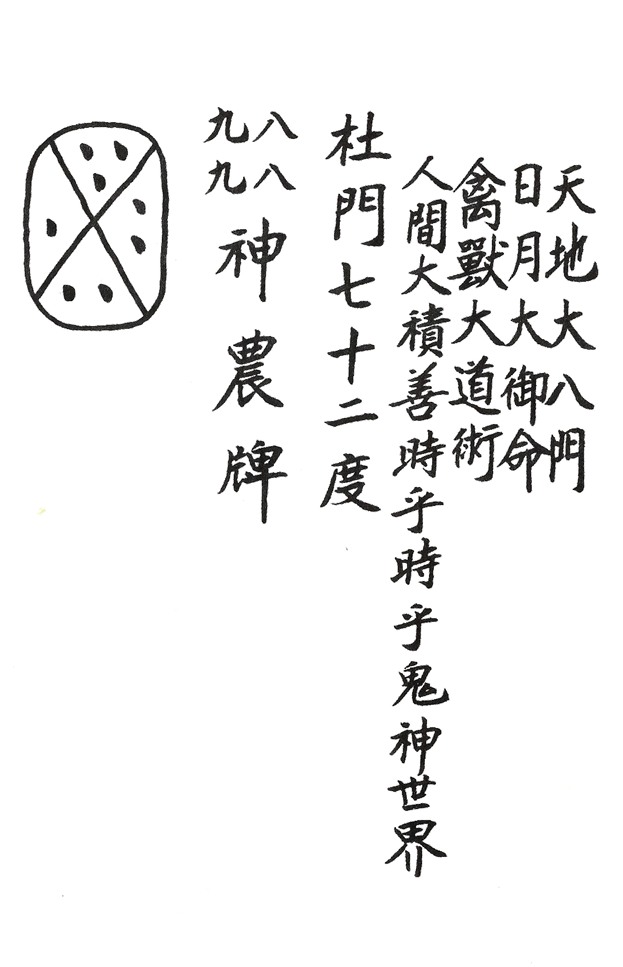 天地大八門
日月大御命
禽獸大道術
人間大積善時乎時乎鬼神世界
杜門七十二度
八八
九九
神農牌